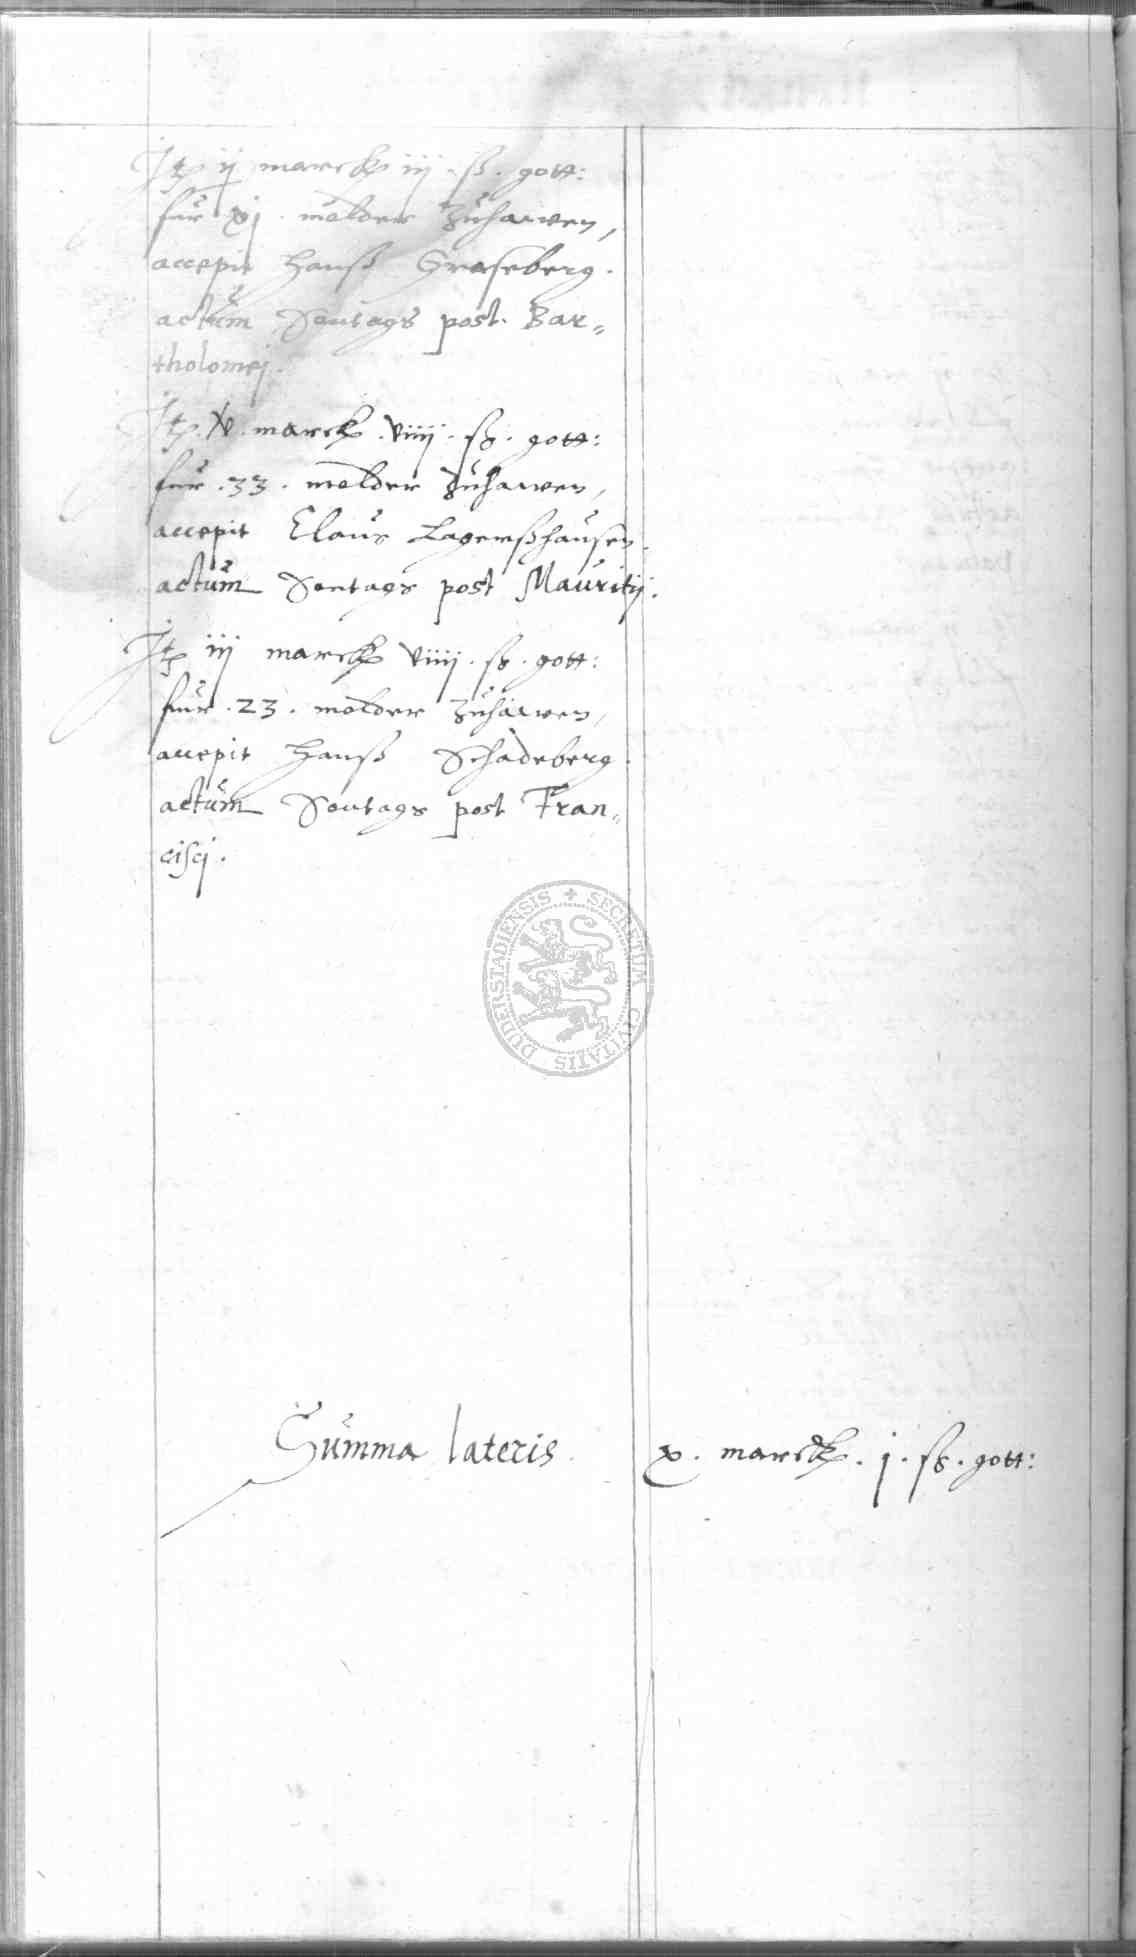 Itẽ ij marck iij · ß · gott:
für xj · molder zuhawen,
accepit Hanß Graseberg.
actum Sontags post Bar=
tholomej.
Itẽ · v · marck · viiij · ß · gott:
für · 33 · molder zuhawen,
accepit Claus Lagerßhausen.
actum Sontags post Mauritij.
Itẽ iij marck viiij · ß · gott:
für · 23 · molder zuhawen,
accepit Hanß Schadeberg.
actum Sontags post Fran=
cisci.
SECRETUM CIVITATIS DUDERSTADIENSIS
Summa lateris x · marck · j · ß · gott: